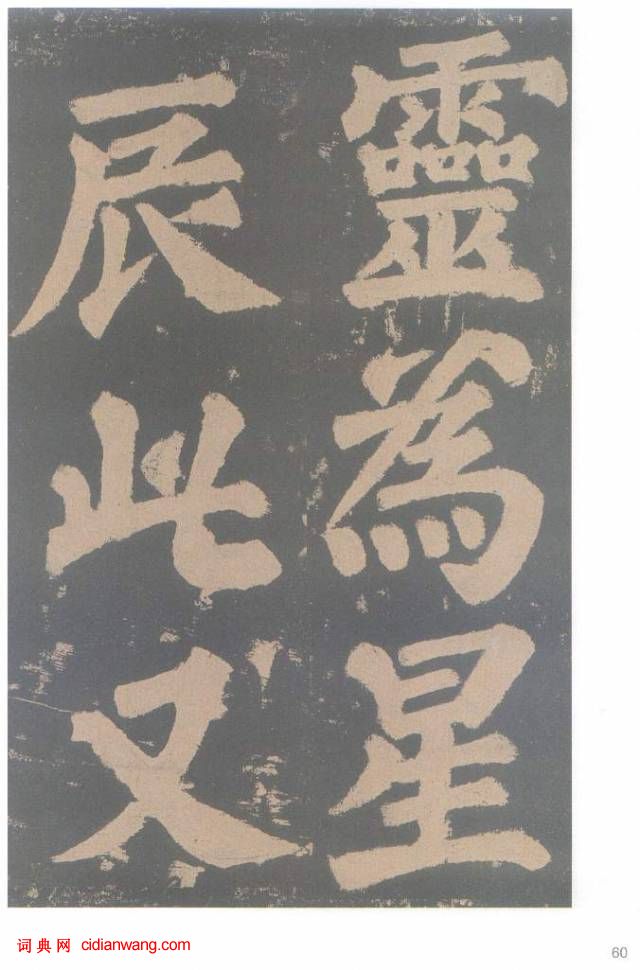 靈為星
辰此又
词典网 cidianwang.com
60